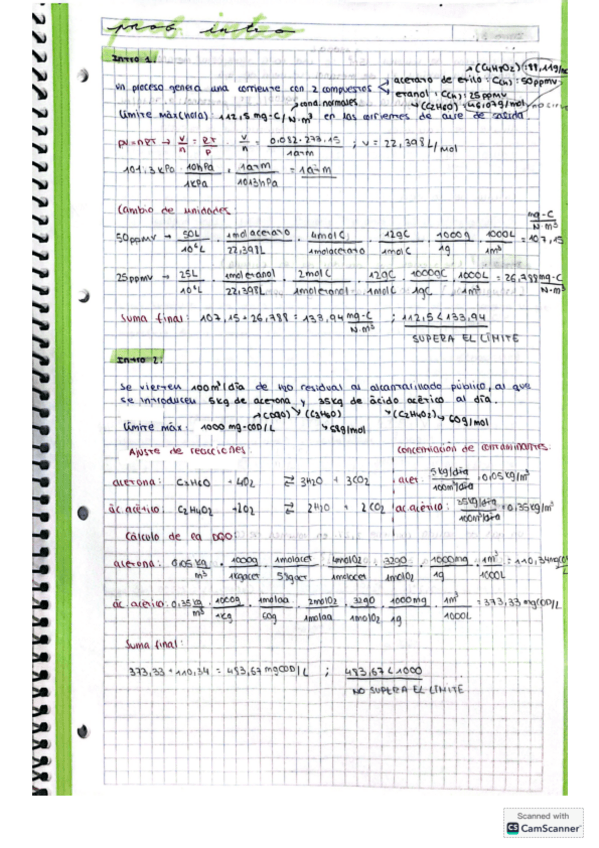 prob intro
Intro 1.
→ (C4H8O2)
un proceso genera una corriente con 2 compuestos < acetato de etilo: C(n): 50ppmv
etanol: C(n): 25 ppmv
→ cond. normales
→ (C2H6O)
límite máx (hora): 112,5 mg-C/N·m³ en las corrientes de aire de salida.
PV=nRT → V/n = RT/P · V/n = 0.082·273.15/1atm ; v = 22,398 L/mol
101,3 kPa · 10hPa/1kPa · 1atm/1013hPa = 1atm
Cambio de unidades
50ppmv → 50L/10⁶L · 1mol acetato/22,398L · 4molC/1molacetato · 12gC/1molC · 1000mg/1g · 1000L/1m³ = 107,15 mg-C/N·m³
25ppmv → 25L/10⁶L · 1mol etanol/22,398L · 2molC/1mol etanol · 12gC/1molC · 1000gC/1gC · 1000L/1m³ = 26,788 mg-C/N·m³
Suma final: 107,15+26,788 = 133,94 mg-C/N·m³ ; 112,5<133,94
SUPERA EL LÍMITE
Intro 2:
Se vierten 100m³/día de H2O residual al alcantarillado público, al que
se introducen 5kg de acetona y 35kg de ácido acético al día.
(C3H6O) → 58g/mol
→ (C2H4O2) → 60g/mol
límite máx: 1000 mg-COD/L
Ajuste de reacciones
Concentración de contaminantes.
acetona: C3H6O + 4O2 ⇄ 3H2O + 3CO2
acet: 5kg/día/100m³/día = 0,05kg/m³
ác acético: C2H4O2 + 2O2 ⇄ 2H2O + 2CO2
ac. acético: 35kg/día/100m³/día = 0,35kg/m³
Cálculo de la DQO:
acetona: 0,05 kg/m³ · 1000g/1kgacet · 1molacet/58gacet · 4molO2/1molacet · 32gO/1molO2 · 1000mg/1g · 1m³/1000L = 110,34
ác. acético: 0.35kg/m³ · 1000g/1kg · 1molaa/60g · 2molO2/1molaa · 32gO/1molO2 · 1000mg/1g · 1m³/1000L = 373,33 mgCOD/L
Suma final:
373,33 + 110,34 = 483,67 mgCOD/L ; 483,67<1000
NO SUPERA EL LÍMITE
Scanned with
CS CamScanner